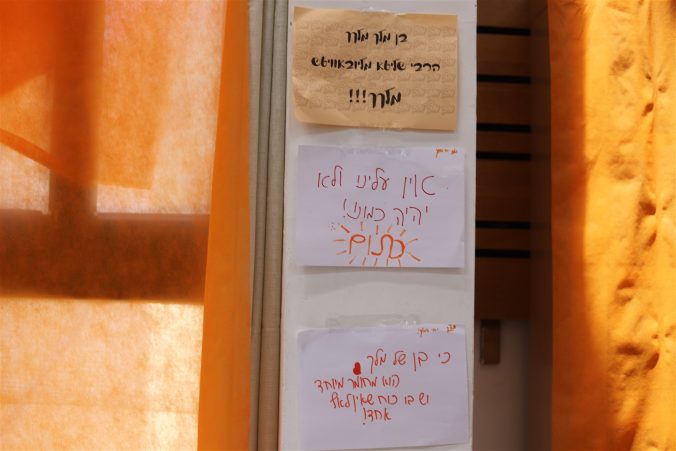 בן מלך מלך
הרבי שליטא מליובאוויטש
מלך!!!
אין עלינו ולא
יהיה כמונו!
כתום
כי בן של מלך
הוא מחומר מיוחד
ויש בו כוח שאין לאף
אחד!